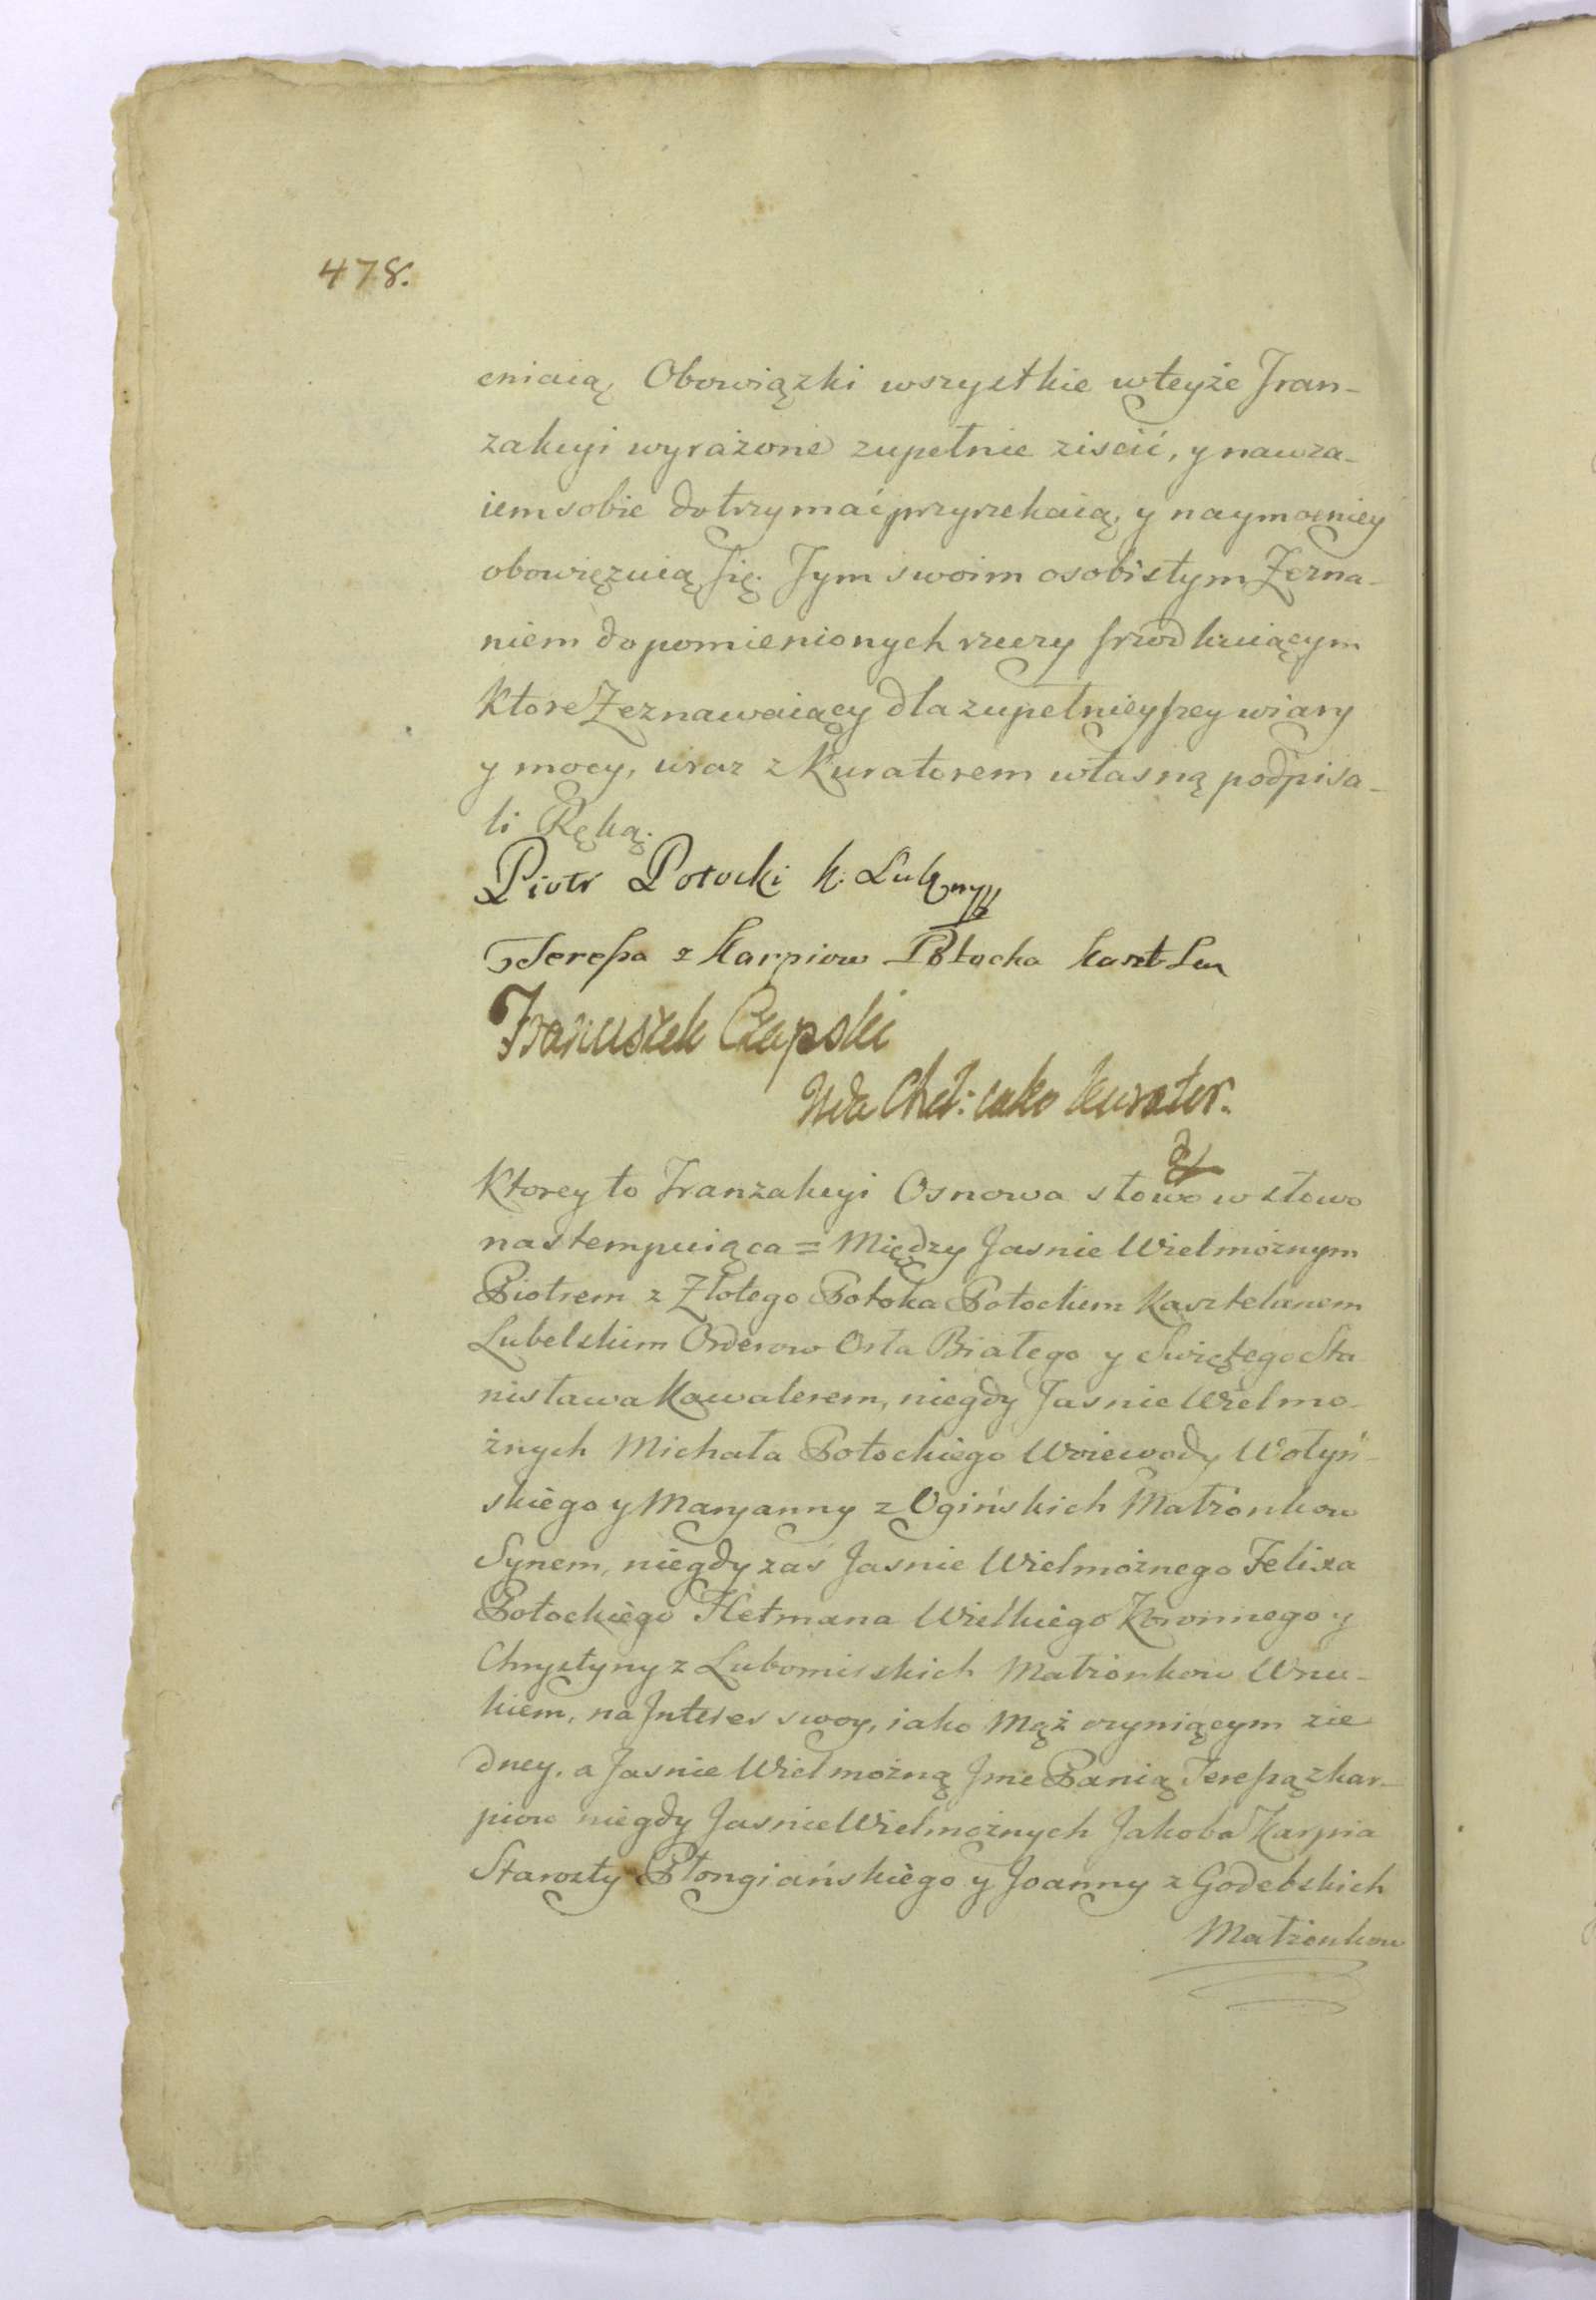 478.
cniaią, Obowiązki wszystkie wteyże Tran-
zakcyi wyrażone zupełnie ziscić, y nawza-
iem sobie dotrzymać przyrzekaią, y naymocniey
obowięzuią się. Tym swoim osobistym Zezna-
niem do pomienionych rzeczy srzodkuiącym
Ktore Zeznawaiący dla zupełnieyszey wiary
y mocy, wraz z Kuratorem własną podpisa-
li Ręką.
Piotr Potocki k. Lub mp
Teressa z Karpiow Potocka kaszt Lu
Franciszek Czapski
Wda Cheł: iako kurator.
Ktorey to Tranzakcyi Osnowa słowo w słowo
nastempuiąca = Między Jasnie Wielmożnym
Piotrem z Złotego Potoka Potockim Kasztelanem
Lubelskim Orderow Orła Białego y Swiętego Sta
nisława Kawalerem, niegdy Jasnie Wielmo-
żnych Michała Potockiego Woiewody Wołyń-
skiego y Maryanny z Ogińskich Małżonkow
Synem, niegdy zaś Jasnie Wielmożnego Felixa
Potockiego Hetmana Wielkiego Koronnego y
Chrystyny z Lubomirskich Małżonkow Wnu-
kiem, na Interes swoy, iako Mąż czyniącym zie
dney, a Jasnie Wielmożną Jme Panią Teressą z Kar-
piow niegdy Jasnie Wielmożnych Jakoba Karpia
Starosty Płongiańskiego y Joanny z Godebskich
Małżonkow